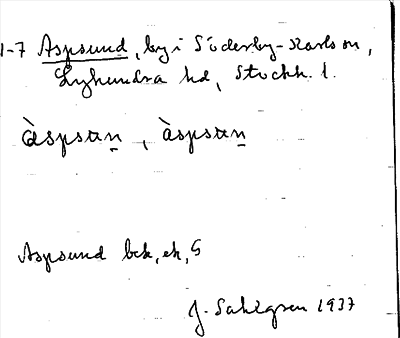 1-7 Aspsund, by i Söderby-Karls sn,
Lyhundra hd, Stockh. l.
àspsun̲, àspsun̲
Aspsund bek, ek, G
J. Sahlgren 1937